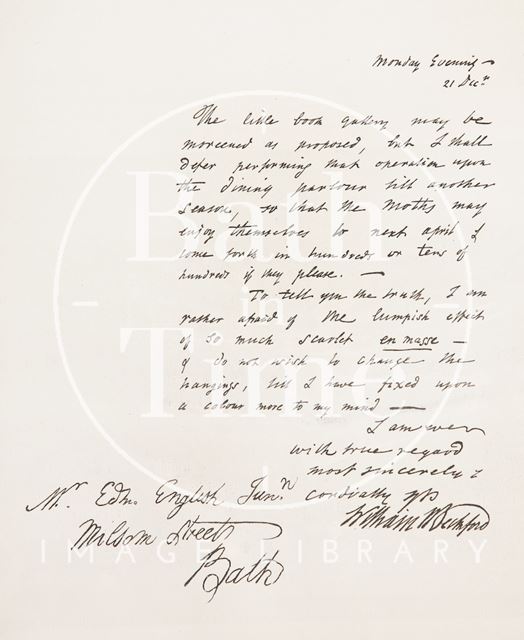 Monday Evening —
21 Decr.
The little book gallery may be
moreened as proposed, but I shall
defer performing that operation upon
the dining parlour till another
Season, so that the Moths may
enjoy themselves &
come forth in hundreds or tens of
hundreds if they please. —
To tell you the truth, I am
rather afraid of the lumpish effect
of so much scarlet en masse —
& do not wish to change the
hangings, till I have fixed upon
a colour more to my mind —
I am ever
with true regard
most sincerely &
cordially yrs
William Beckford
Mr. Edm. English Junr.
Milsom Street
Bath
Bath
in
Time
IMAGE LIBRARY